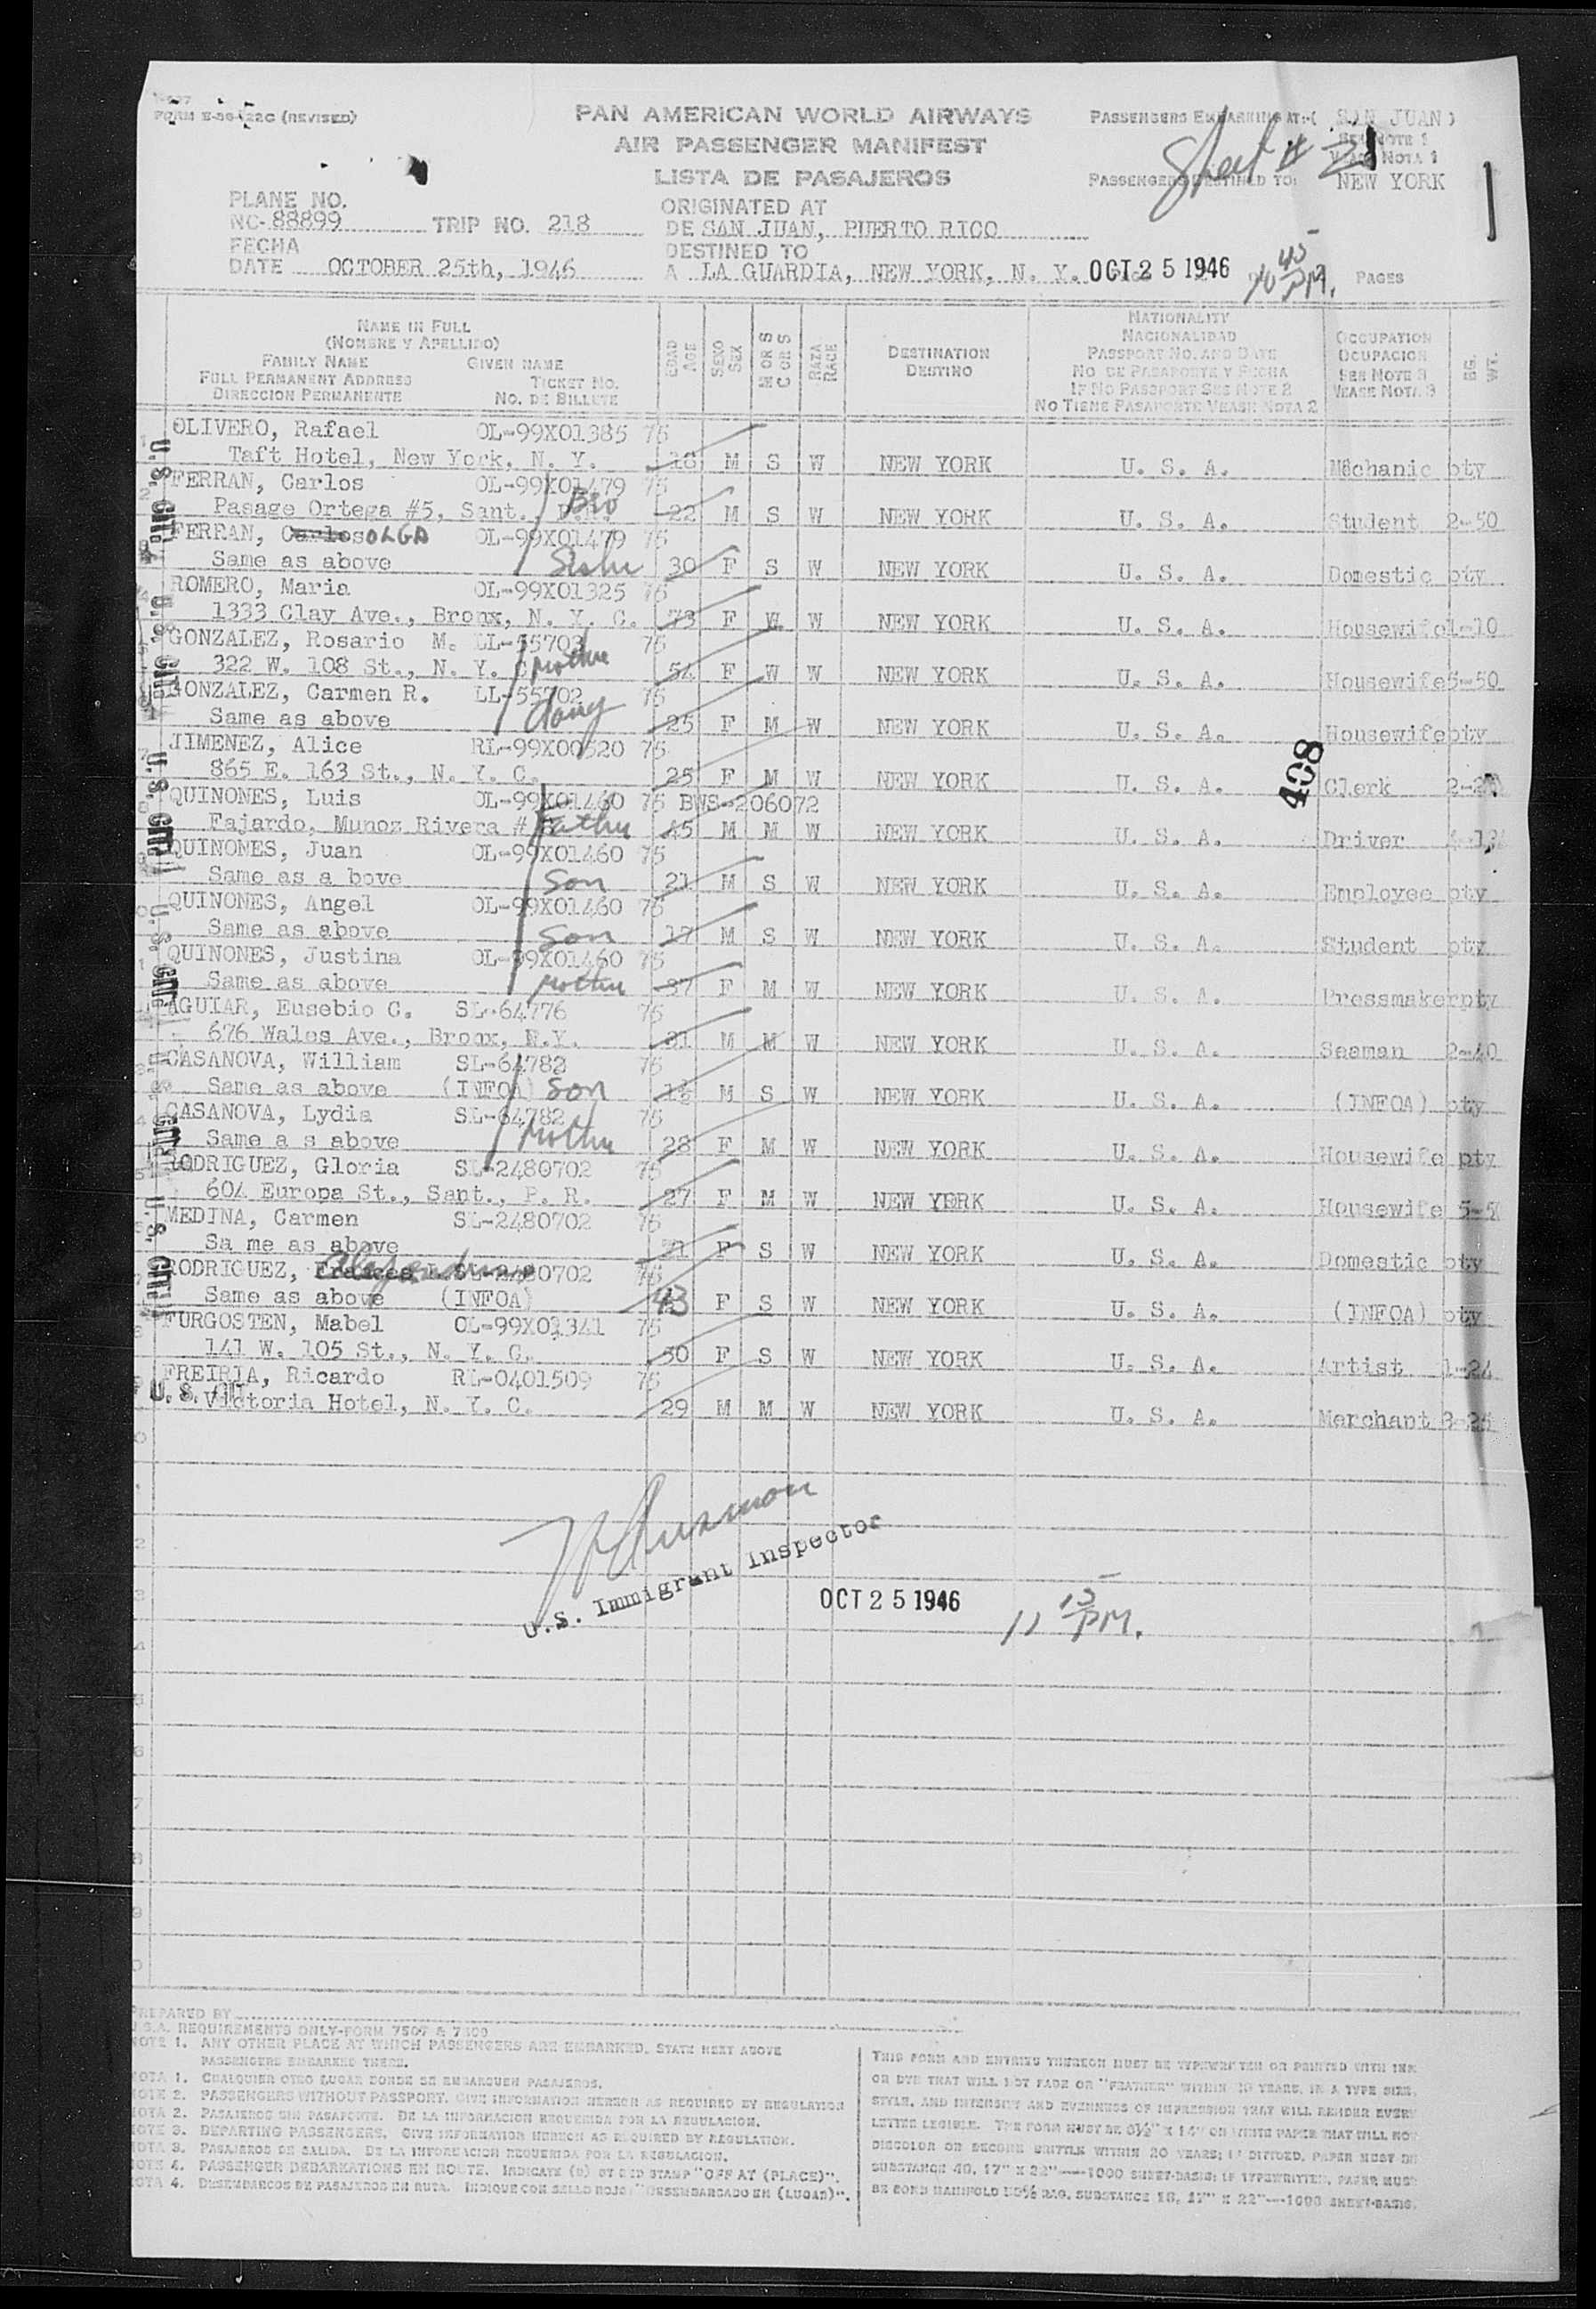 FORM E-36-122C (REVISED)
PAN AMERICAN WORLD AIRWAYS
AIR PASSENGER MANIFEST
LISTA DE PASAJEROS
PASSENGERS EMBARKING AT:( SAN JUAN )
SEE NOTE 1
VEASE NOTA 1
PASSENGERS DESTINED TO: NEW YORK
Sheet # 21
PLANE NO.
NC-88899 TRIP NO. 218
ORIGINATED AT
DE SAN JUAN, PUERTO RICO
FECHA
DATE OCTOBER 25th, 1946
DESTINED TO
A LA GUARDIA, NEW YORK, N. Y. OCT 25 1946 10 45 PM. PAGES
NAME IN FULL
(NOMBRE Y APELLIDO)
FAMILY NAME GIVEN NAME
FULL PERMANENT ADDRESS TICKET NO.
DIRECCION PERMANENTE NO. DE BILLETE
EDAD AGE
SEXO SEX
M OR S C OR S
RAZA RACE
DESTINATION
DESTINO
NATIONALITY
NACIONALIDAD
PASSPORT NO. AND DATE
NO DE PASAPORTE Y FECHA
IF NO PASSPORT SEE NOTE 2
NO TIENE PASAPORTE VEASE NOTA 2
OCCUPATION
OCUPACION
SEE NOTE 3
VEASE NOTA 3
BG. WT.
OLIVERO, Rafael OL-99X01385 75
Taft Hotel, New York, N. Y. 18 M S W NEW YORK U. S. A. Mechanic pty
FERRAN, Carlos OL-99X01479 75
Pasage Ortega #5, Sant., Bro 22 M S W NEW YORK U. S. A. Student 2-50
FERRAN, Carlos OLGA OL-99X01479 75
Same as above Sister 30 F S W NEW YORK U. S. A. Domestic pty
ROMERO, Maria OL-99X01325 75
1333 Clay Ave., Bronx, N. Y. C. 73 F W W NEW YORK U. S. A. Housewife 1-10
GONZALEZ, Rosario M. LL-55703 75
322 W. 108 St., N. Y. C Mother 54 F W W NEW YORK U. S. A. Housewife 5-50
GONZALEZ, Carmen R. LL-55702 75
Same as above daug 25 F M W NEW YORK U. S. A. Housewife pty
JIMENEZ, Alice RL-99X00520 75
865 E. 163 St., N. Y. C. 25 F M W NEW YORK U. S. A. 408 Clerk
QUINONES, Luis OL-99X01460 75 BWS-206072
Fajardo, Munoz Rivera # Father 45 M M W NEW YORK U. S. A. Driver
QUINONES, Juan OL-99X01460 75
Same as a bove Son 21 M S W NEW YORK U. S. A. Employee pty
QUINONES, Angel OL-99X01460 75
Same as above Son 17 M S W NEW YORK U. S. A. Student pty
QUINONES, Justina OL-99X01460 75
Same as above Mother 37 F M W NEW YORK U. S. A. Pressmaker pty
AGUIAR, Eusebio C. SL-64776 75
676 Wales Ave., Bronx, N.Y. 31 M M W NEW YORK U. S. A. Seaman 2-40
CASANOVA, William SL-64782 75
Same as above (INFOA) Son 1½ M S W NEW YORK U. S. A. (INFOA) pty
CASANOVA, Lydia SL-64782 75
Same a s above Mother 28 F M W NEW YORK U. S. A. Housewife pty
RODRIGUEZ, Gloria SL-2480702 75
604 Europa St., Sant., P. R. 27 F M W NEW YORK U. S. A. Housewife
MEDINA, Carmen SL-2480702 75
Sa me as above 21 F S W NEW YORK U. S. A. Domestic pty
RODRIGUEZ, Frances SL-2480702 75
Same as above (INFOA) 43 F S W NEW YORK U. S. A. (INFOA) pty
FURGOSTEN, Mabel OL-99X01341 75
141 W. 105 St., N. Y. C. 30 F S W NEW YORK U. S. A. Artist 1-24
FREIRIA, Ricardo RL-0401509 75
Victoria Hotel, N. Y. C. 29 M M W NEW YORK U. S. A. Merchant 3-25
U.S. Immigrant Inspector
OCT 25 1946 11 15 PM.
PREPARED BY
U.S.A. REQUIREMENTS ONLY-FORM 7507 & 7509
NOTE 1. ANY OTHER PLACE AT WHICH PASSENGERS ARE EMBARKED, STATE NEXT ABOVE
PASSENGERS EMBARKED THERE.
NOTA 1. CUALQUIER OTRO LUGAR DONDE SE EMBARQUEN PASAJEROS.
NOTE 2. PASSENGERS WITHOUT PASSPORT. GIVE INFORMATION HEREON AS REQUIRED BY REGULATION
NOTA 2. PASAJEROS SIN PASAPORTE. DE LA INFORMACION REQUERIDA POR LA REGULACION.
NOTE 3. DEPARTING PASSENGERS. GIVE INFORMATION HEREON AS REQUIRED BY REGULATION.
NOTA 3. PASAJEROS DE SALIDA. DE LA INFORMACION REQUERIDA POR LA REGULACION.
NOTE 4. PASSENGER DEBARKATIONS EN ROUTE. INDICATE (D) BY RED STAMP "OFF AT (PLACE)".
NOTA 4. DESEMBARCOS DE PASAJEROS EN RUTA. INDIQUE CON SELLO ROJO: "DESEMBARCADO EN (LUGAR)".
THIS FORM AND ENTRIES THEREON MUST BE TYPEWRITTEN OR PRINTED WITH INK
OR DYE THAT WILL NOT FADE OR "FEATHER" WITHIN 20 YEARS, IN A TYPE SIZE,
STYLE, AND INTENSITY AND EVENNESS OF IMPRESSION THAT WILL RENDER EVERY
LETTER LEGIBLE. THE FORM MUST BE 8½" X 14" ON WHITE PAPER THAT WILL NOT
DISCOLOR OR BECOME BRITTLE WITHIN 20 YEARS; IF DIVIDED, PAPER MUST BE
SUBSTANCE 40, 17" X 22"—1000 SHEET-BASIS; IF TYPEWRITTEN, PAPER MUST
BE BOND MANIFOLD 50% RAG, SUBSTANCE 18, 17" X 22"—1000 SHEET-BASIS.